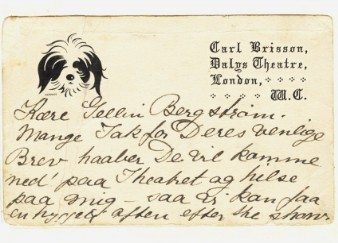 Carl Brisson,
Dalys Theatre,
London,
W.C.
Kære Bergstrøm.
Mange Tak for Deres venlige
Brev haaber De vil komme
ned paa Theatret og hilse
paa mig – saa vi kan faa
en hyggelig aften efter the show